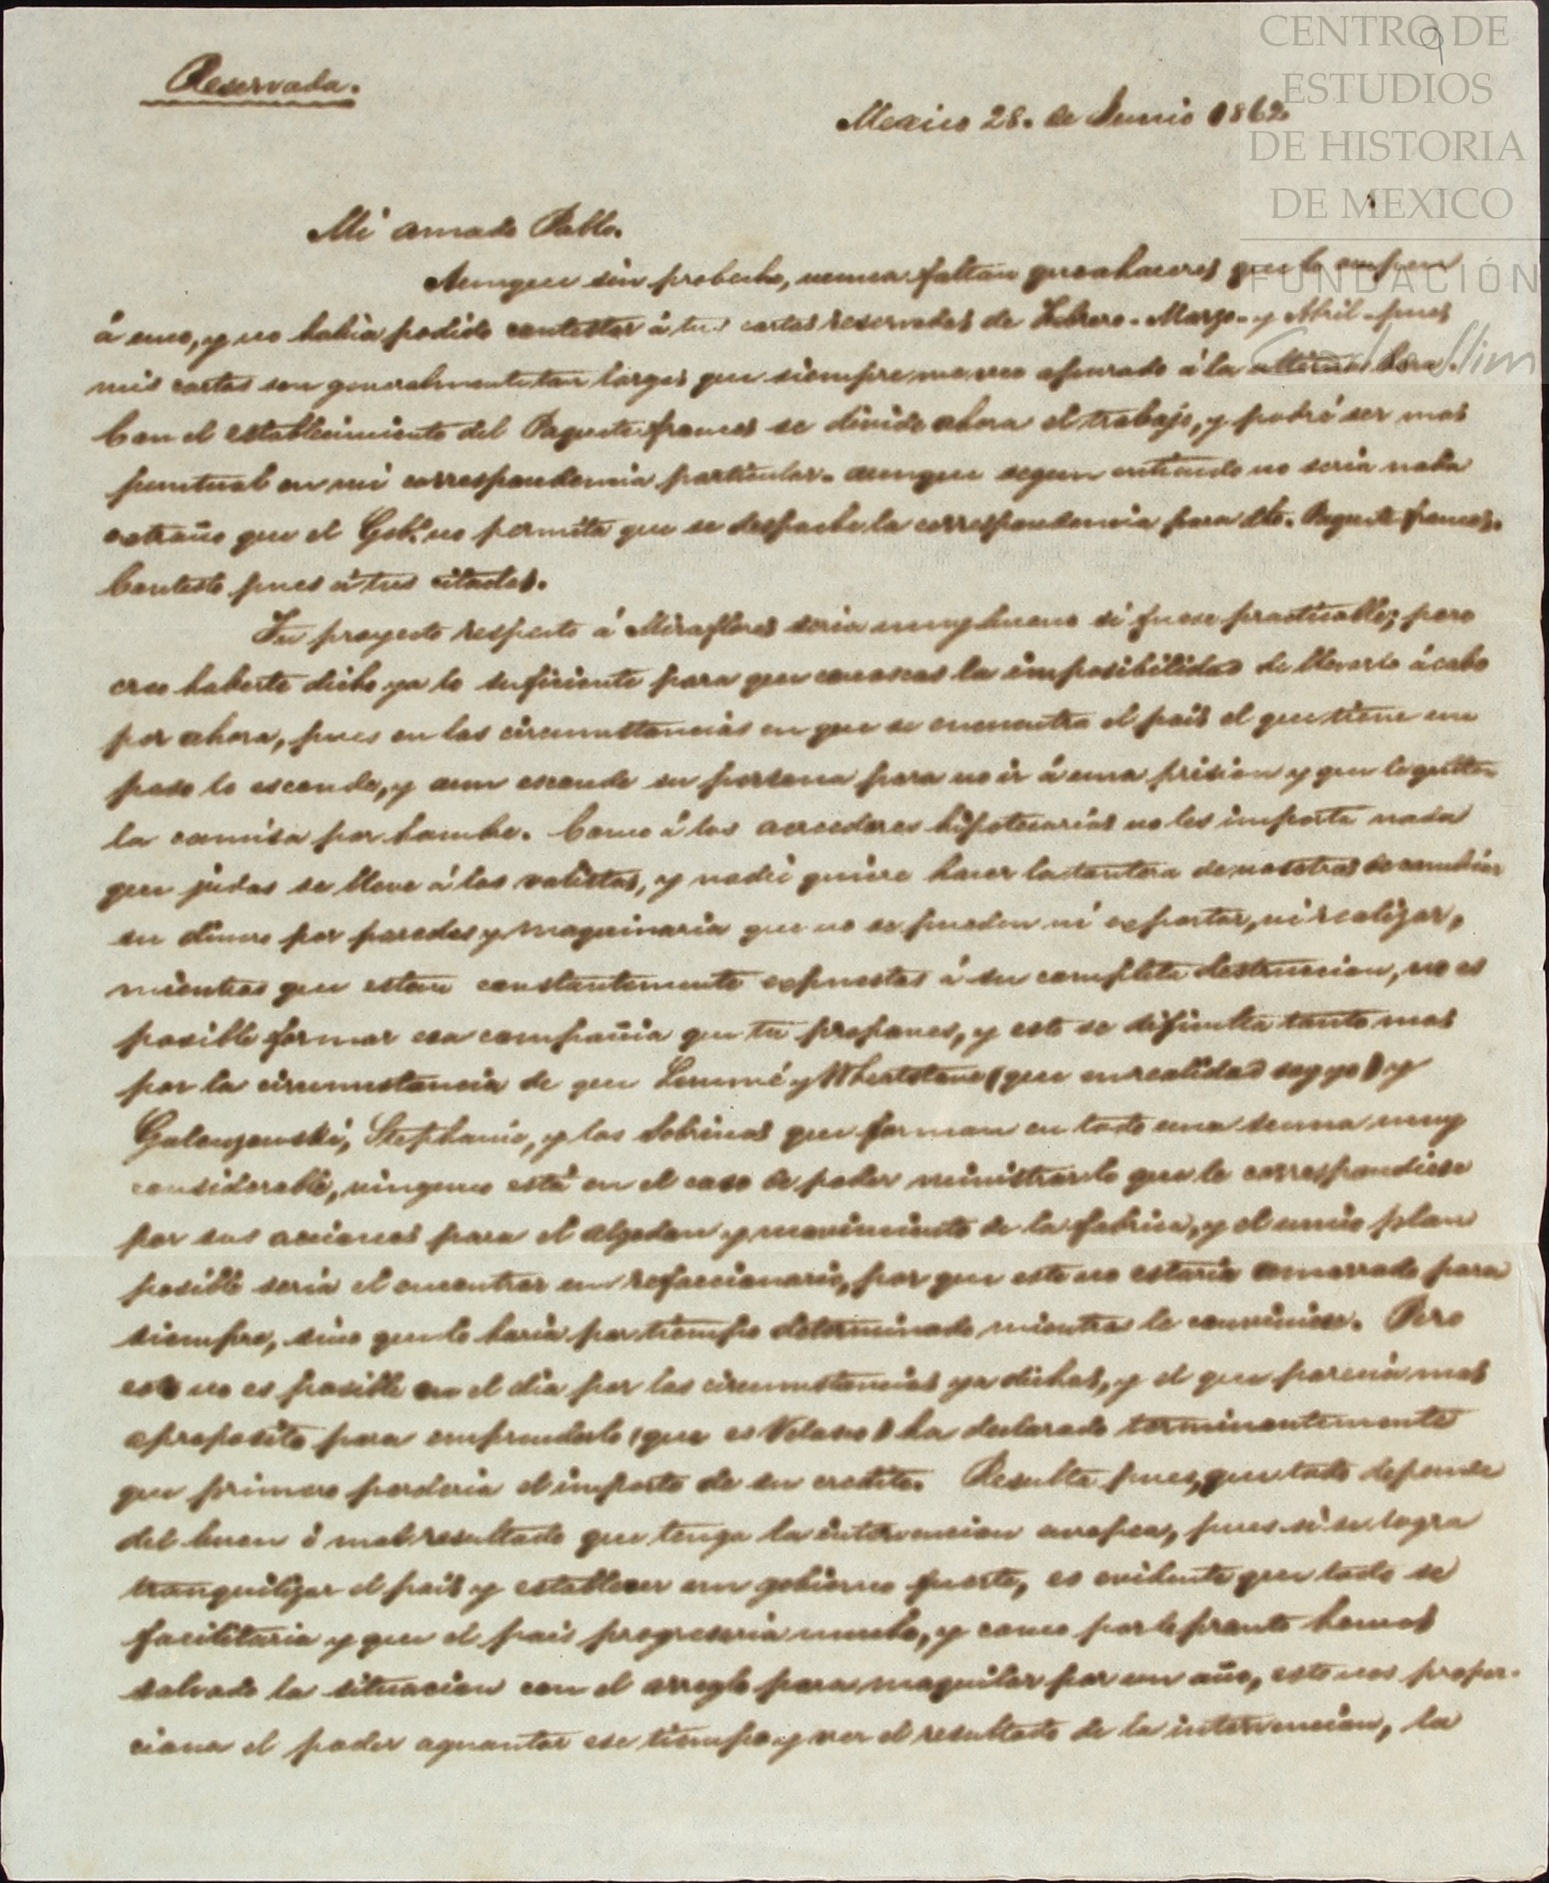 CENTRO DE
ESTUDIOS
DE HISTORIA
DE MEXICO
FUNDACIÓN
Carlos Slim
9
Reservada.
Mexico 28. de Junio 1862
Mi amado Pablo.
Aunque sin probecho, nunca faltan quehaceres que lo ocupen
á uno, y no habia podido contestar á tus cartas reservadas de Febrero. Marzo. y Abril. pues
mis cartas son generalmente tan largas que siempre me veo apurado á la ultima hora.
Con el establecimiento del Paquete frances se divide ahora el trabajo, y podré ser mas
puntual en mi correspondencia particular. aunque segun entiendo no seria nada
extraño que el Gob.º no permita que se despache la correspondencia para dho. Paquete frances.
Contesto pues á tus citadas.
Tu proyecto respecto á Miraflores seria muy bueno si fuese practicable; pero
creo haberte dicho ya lo suficiente para que conoscas la imposibilidad de llevarlo ácabo
por ahora, pues en las circunstancias en que se encuentra el pais el que tiene un
peso lo esconde, y aun esconde su persona para no ir á una prision y que le quiten
la camisa por hambre. Como á los acreedores hipotecarios no les importa nada
que judas se lleve á los valistas, y nadie quiere hacer la tontera de nosotros de cambiar
su dinero por paredes y maquinaria que no se pueden ni exportar, ni realizar,
mientras que estan constantemente expuestas á su completa destruccion, no es
posible formar esa compañia que tu propones, y esto se dificulta tanto mas
por la circunstancia de que y (que en realidad soy yo) y
Stephanie, y los Sobrinos que forman en todo una suma muy
considerable, ninguno está en el caso de poder ministrar lo que le correspondiese
por sus acciones para el algodon y movimiento de la fabrica, y el unico plan
posible seria el encontrar un refaccionario, por que este no estaria amarrado para
siempre, sino que lo haria por tiempo determinado mientras le conviniese. Pero
esto no es posible en el dia por las circunstancias ya dichas, y el que parecia mas
aproposito para emprenderlo (que es Velasco) ha declarado terminantemente
que primero perderia el importe de su credito. Resulta pues, que todo depende
del buen ó mal resultado que tenga la intervencion europea, pues si se logra
tranquilizar el pais y establecer un gobierno fuerte, es evidente que todo se
facilitaria y que el pais progresaria mucho, y como por lo pronto hemos
salvado la situacion con el arreglo para maquilar por un año, esto nos propor-
ciona el poder aguantar ese tiempo y ver el resultado de la intervencion, la